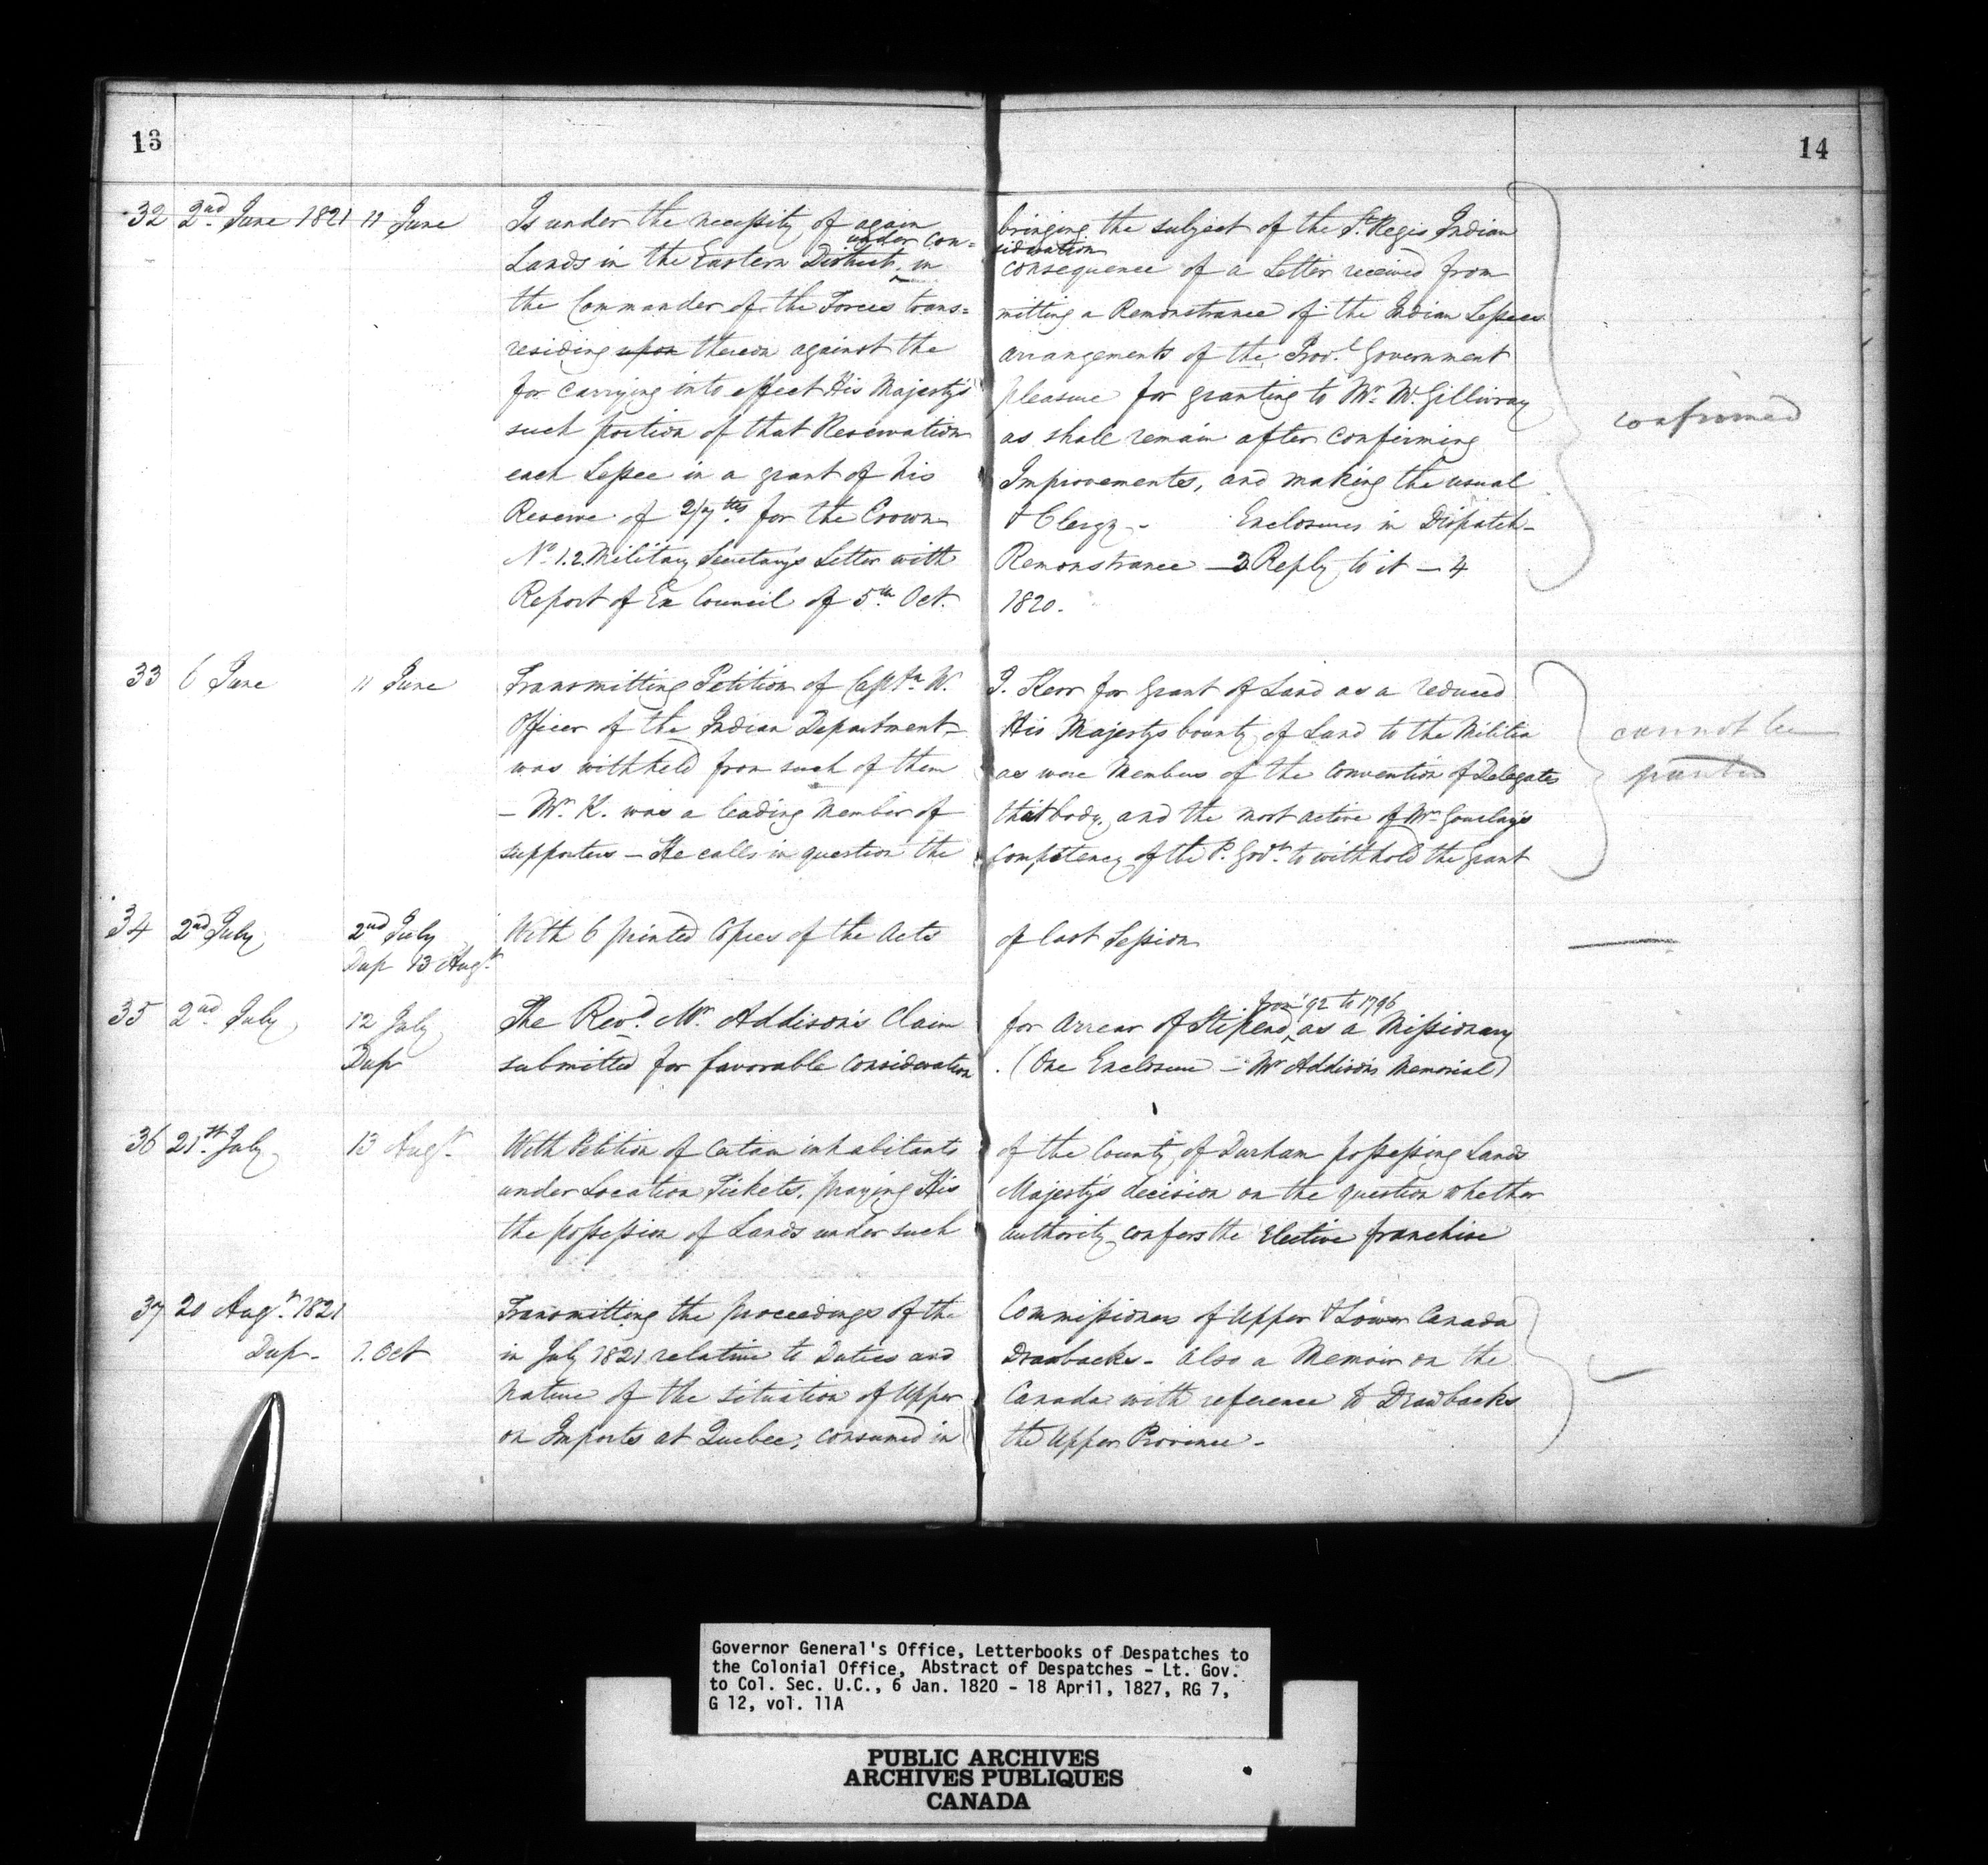 13
14
32 2nd June 1821 11 June Is under the necessity of again bringing the subject of the St Regis Indian
under con= sideration
Lands in the Eastern District ^ in consequence of a Letter received from
the Commander of the Forces trans= mitting a Remonstrance of the Indian Lessees
residing upon thereon against the arrangements of the Provl Government
for carrying into effect His Majesty's pleasure for granting to Mr McGillivray
such portion of that Reservation as shall remain after confirming
each Lessee in a grant of his Improvements, and making the usual
Reserve of 2/7ths for the Crown & Clergy - Enclosures in Dispatch -
No 1. 2. Military Secretary's Letter with Remonstrance - 3 Reply to it - 4
Report of Ex Council of 5th Oct. 1820.
confirmed
33 6 June 11 June Transmitting Petition of Captn W. J. Kerr for Grant of Land as a reduced
Officer of the Indian Department - His Majesty's bounty of Land to the Militia
was withheld from such of them as were Members of the Convention of Delegates
- Mr K. was a leading Member of that body, and the most active of Mr Gourlay's
supporters - He calls in question the competency of the P. Govt to withhold the Grant
cannot be
34 2nd July 2nd July With 6 printed Copies of the Acts of last Session
Dup 13 Augt
from 92 to 1796
35 2nd July 12 July The Revd Mr Addison's Claim for Arrear of Stipend ^ as a Missionary
Dup submitted for favorable consideration. (One Enclosure - Mr Addison's Memorial)
36 21st July 13 Augt With Petition of Certain inhabitants of the County of Durham possessing Lands
under Location Tickets, praying His Majesty's decision on the question whether
the possession of Lands under such authority confers the Elective franchise
37 20 Augt 1821 Transmitting the proceedings of the Commissioners of Upper & Lower Canada
Dup - 1. Oct in July 1821 relative to Duties and Drawbacks - Also a Memoir on the
nature of the situation of Upper Canada with reference to Drawbacks
on Imports at Quebec, consumed in the Upper Province -
Governor General's Office, Letterbooks of Despatches to
the Colonial Office, Abstract of Despatches - Lt. Gov.
to Col. Sec. U.C., 6 Jan. 1820 - 18 April, 1827, RG 7,
G 12, vol. 11A
PUBLIC ARCHIVES
ARCHIVES PUBLIQUES
CANADA